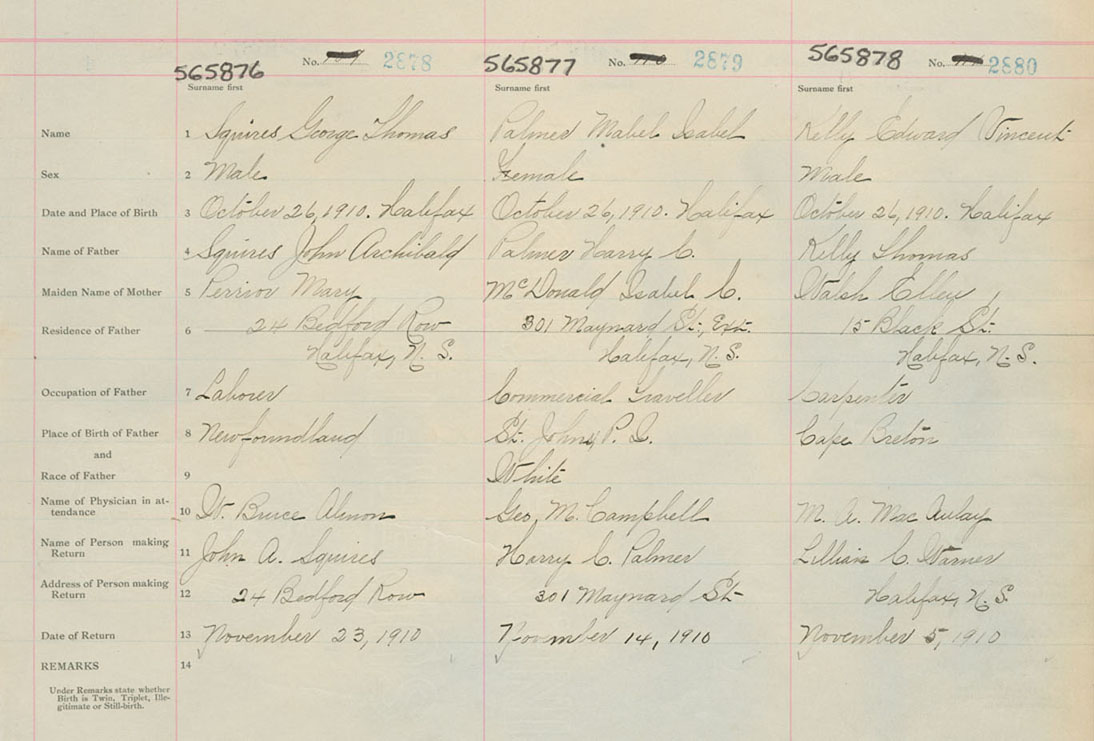 565876 No. 2878 565877 No. 2879 565878 No. 2880
Surname first Surname first Surname first
Name 1 Squires George Thomas Palmer Mabel Isabel Kelly Edward Vincent
Sex 2 Male Female Male
Date and Place of Birth 3 October 26, 1910. Halifax October 26, 1910. Halifax October 26, 1910. Halifax
Name of Father 4 Squires John Archibald Palmer Harry C. Kelly Thomas
Maiden Name of Mother 5 Mary McDonald Isabel C. Walsh Ellen
Residence of Father 6 24 Bedford Row 301 Maynard St., Ext. 15 Black St.
Halifax, N. S. Halifax, N. S. Halifax, N. S.
Occupation of Father 7 Laborer Commercial Traveller Carpenter
Place of Birth of Father 8 Newfoundland St. Johns, P. Q. Cape Breton
and
Race of Father 9 White
Name of Physician in at-
tendance 10 W. Bruce Almon Geo. M. Campbell M. A. MacAulay
Name of Person making
Return 11 John A. Squires Harry C. Palmer Lillian C. Warner
Address of Person making
Return 12 24 Bedford Row 301 Maynard St Halifax, N. S.
Date of Return 13 November 23, 1910 November 14, 1910 November 5, 1910
REMARKS 14
Under Remarks state whether
Birth is Twin, Triplet, Ille-
gitimate or Still-birth.